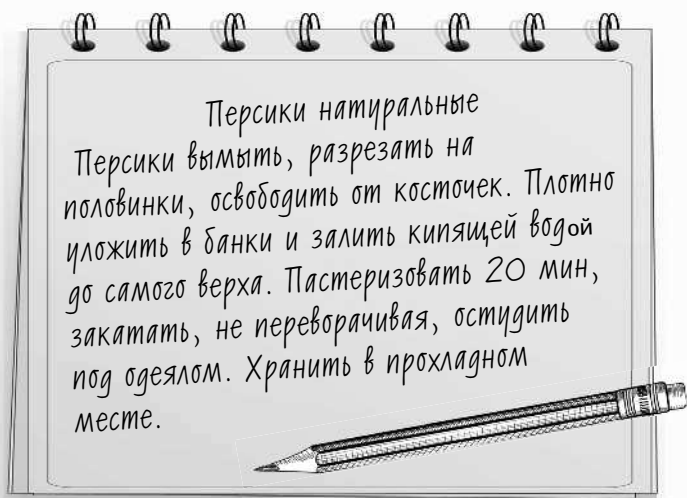 Персики натуральные
Персики вымыть, разрезать на
половинки, освободить от косточек. Плотно
уложить в банки и залить кипящей водой
до самого верха. Пастеризовать 20 мин,
закатать, не переворачивая, остудить
под одеялом. Хранить в прохладном
месте.